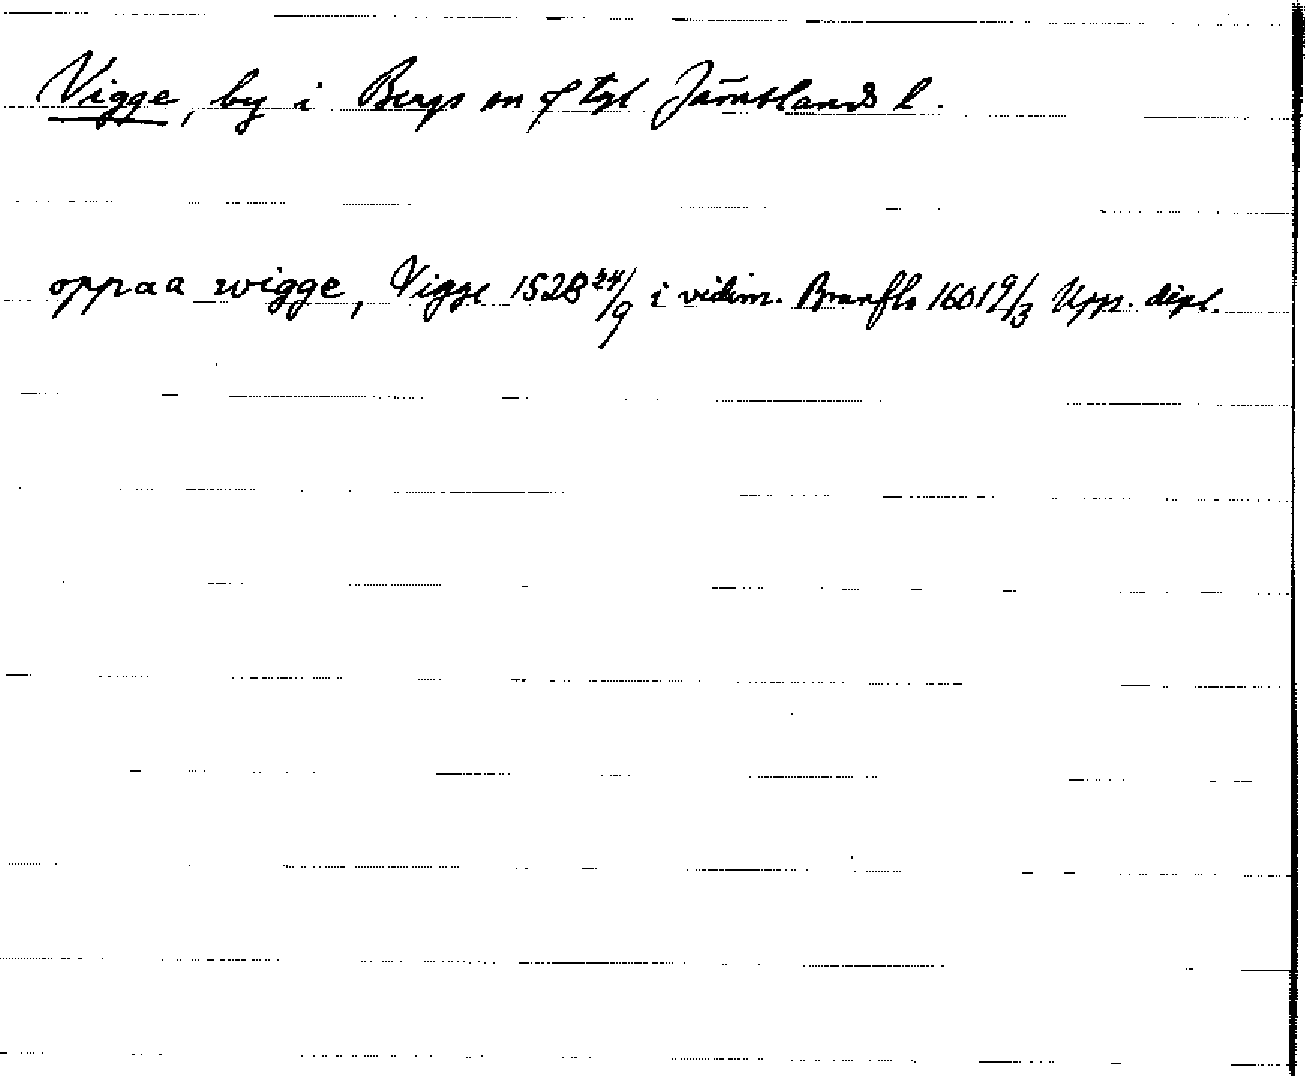 Vigge, by i Bergs sn o tgl Jämtlands l.
oppaa wigge, Vigge 1528 24/9 i vidim. Brunflo 1601 9/3 Upp. dipl.